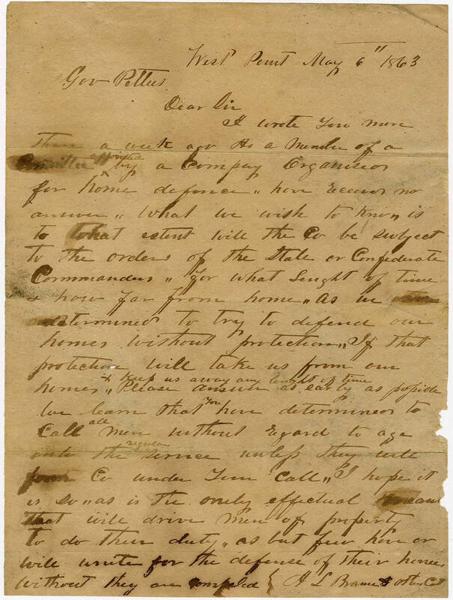 West Point May 6" 1863
Gov Pettus
Dear Sir
I wrote you more
than a week ago As a Member of a
Committee appointed by a Compay Organised
for home defence " have Receivd no
answer " What we wish to know is
to what extent will the Co be subject
to the orders of the State or Confederate
Commanders " for what lenght of time
& how far from home " as we
determined to try to defend our
homes without protection " If that
protection will take us from our
homes & Keep us away any lenght of time
Please answer as early as posible
We learn that you have determined to
Call all men without regard to age
into the regular service unless they will
form Co under your Call " I hope it
is so " as is the only effectual means
that will drive men of property
to do their duty " as but few have or
will unite for the defence of their homes
without they are compeled